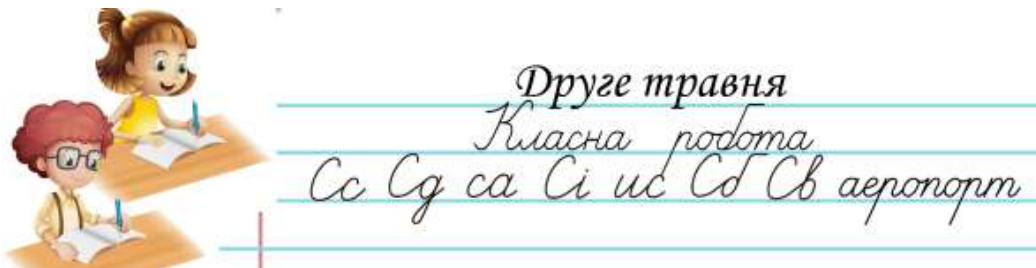 Друге травня
Класна робота
Сс Сд са Сі ис Сб Св аеропорт